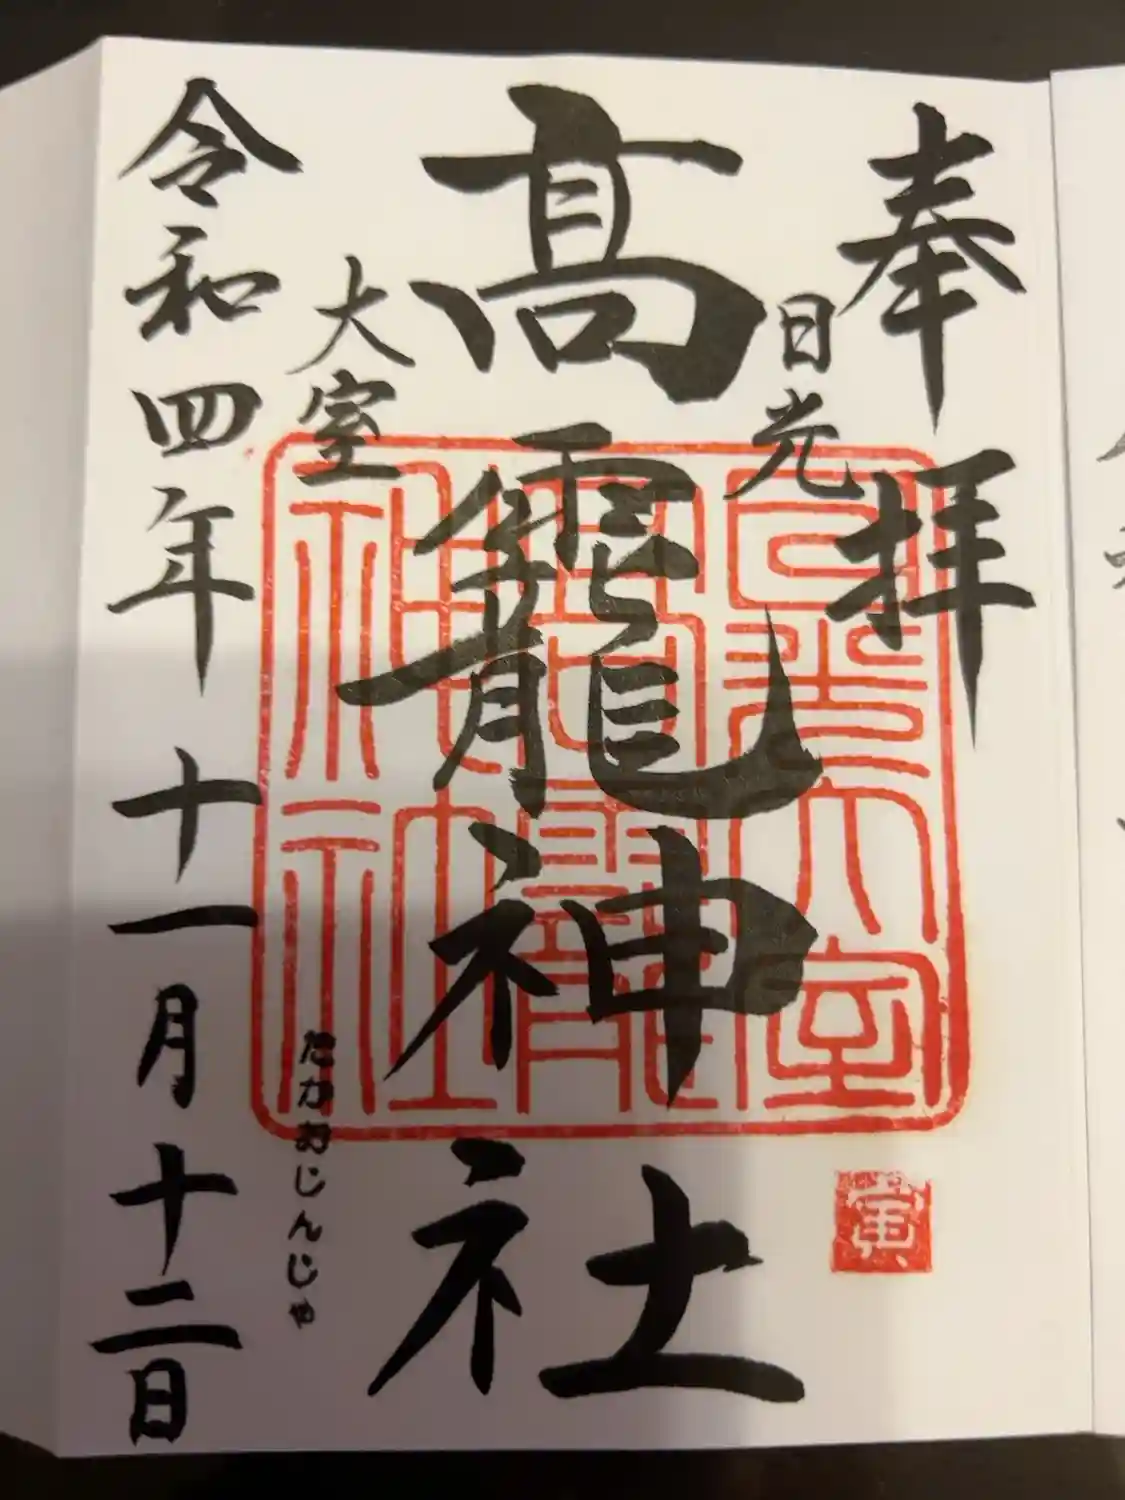 奉拝
日光
高龗神社
大室
たかおじんじゃ
令和四年 十一月十二日
日光大室
高龗
神社
寅